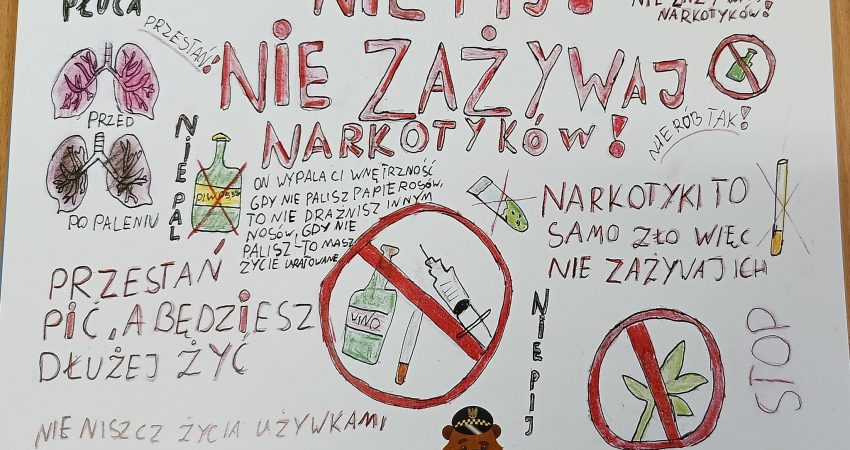 PŁUCA
NIE PIJ!
NARKOTYKÓW!
PRZESTAŃ!
NIE ZAŻYWAJ
NARKOTYKÓW!
NIE RÓB TAK!
PRZED
PO PALENIU
NIE PAL
PIWO
ON WYPALA CI WNĘTRZNOŚĆ
GDY NIE PALISZ PAPIEROSÓW,
TO NIE DRAŻNISZ INNYM
NOSÓW, GDY NIE
PALISZ - TO MASZ
ŻYCIE URATOWANE
NARKOTYKI TO
SAMO ZŁO WIĘC
NIE ZAŻYVAJ ICH
PRZESTAŃ
PIĆ, A BĘDZIESZ
DŁUŻEJ ŻYĆ
VINO
NIE PIJ
STOP
NIE NISZCZ ŻYCIA UŻYWKAMI